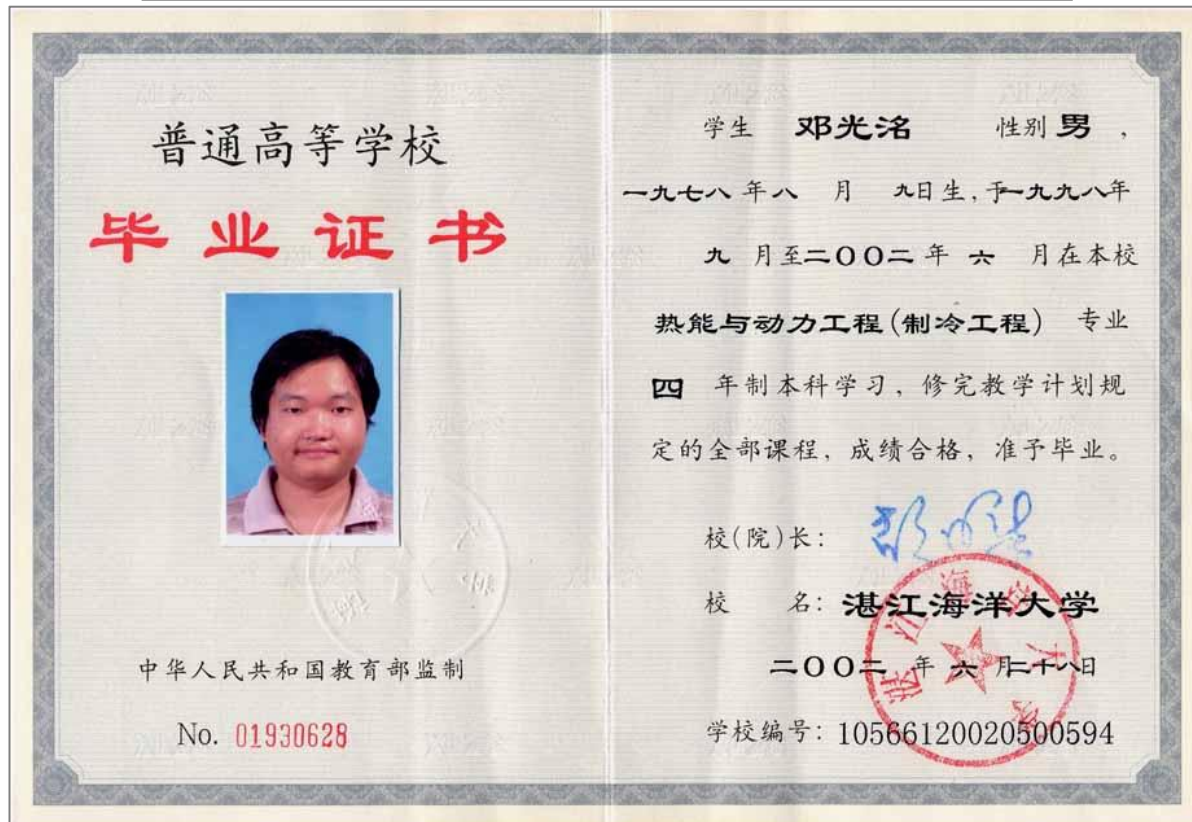 普通高等学校
毕业证书
中华人民共和国教育部监制
No. 01930628
学生 邓光洺 性别 男，
一九七八年八 月 九日生，于一九九八年
九 月至二〇〇二年 六 月在本校
热能与动力工程(制冷工程) 专业
四 年制本科学习，修完教学计划规
定的全部课程，成绩合格，准予毕业。
校(院)长：
校 名：湛江海洋大学
二〇〇二 年 六 月二十八日
学校编号：10566120020500594
湛江海洋大学